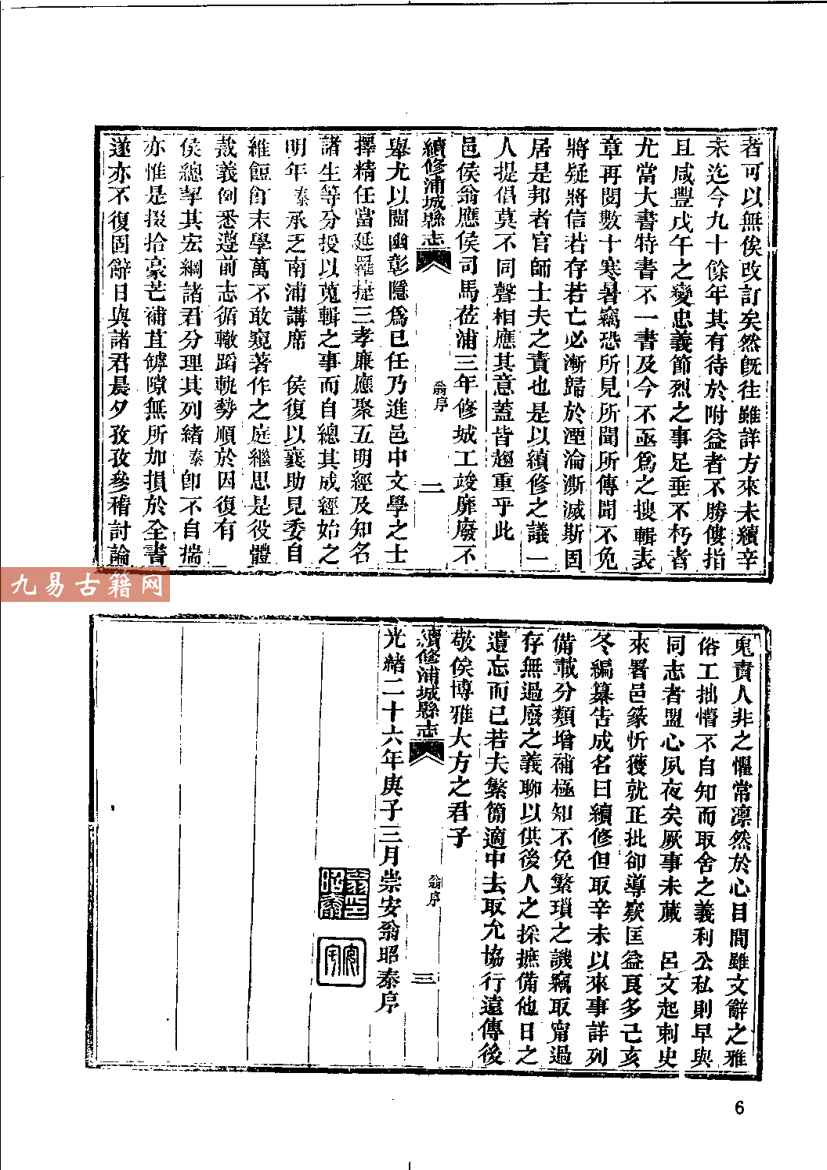 者可以無俟改訂矣然既往雖詳方來未續辛
未迄今九十餘年其有待於附益者不勝僂指
且咸豐戊午之變忠義節烈之事足垂不朽者
尤當大書特書不一書及今不亟爲之搜輯表
章再閱數十寒暑竊恐所見所聞所傳聞不免
將疑將信若存若亡必漸歸於湮淪澌滅斯固
居是邦者官師士夫之責也是以續修之議一
人提倡莫不同聲相應其意蓋皆趣重乎此
邑侯翁應侯司馬莅浦三年修城工竣靡廢不
續修浦城縣志
翁序
二
舉尤以闡幽彰隱爲已任乃進邑中文學之士
擇精任當延羅捷三孝廉應聚五明經及知名
諸生等分授以蒐輯之事而自總其成經始之
明年泰承乏南浦講席 侯復以襄助見委自
維餖飣末學萬不敢窺著作之庭繼思是役體
裁義例悉遵前志循轍蹈軌勢順於因復有
侯總挈其宏綱諸君分理其列緒泰卽不自揣
亦惟是掇拾豪芒補苴罅隙無所加損於全書
遂亦不復固辭日與諸君晨夕孜孜參稽討論
鬼責人非之懼常凛然於心目間雖文辭之雅
俗工拙懵不自知而取舍之義利公私則早與
同志者盟心夙夜矣厥事未蕆 呂文起刺史
來署邑篆忻獲就正批卻導窾匡益良多己亥
冬編纂告成名曰續修但取辛未以來事詳列
備載分類增補極知不免繁瑣之譏竊取甯過
存無過廢之義聊以供後人之採摭備他日之
遺忘而已若夫繁簡適中去取允協行遠傳後
敬俟博雅大方之君子
續修浦城縣志
翁序
三
光緒二十六年庚子三月崇安翁昭泰序
九易古籍网
6